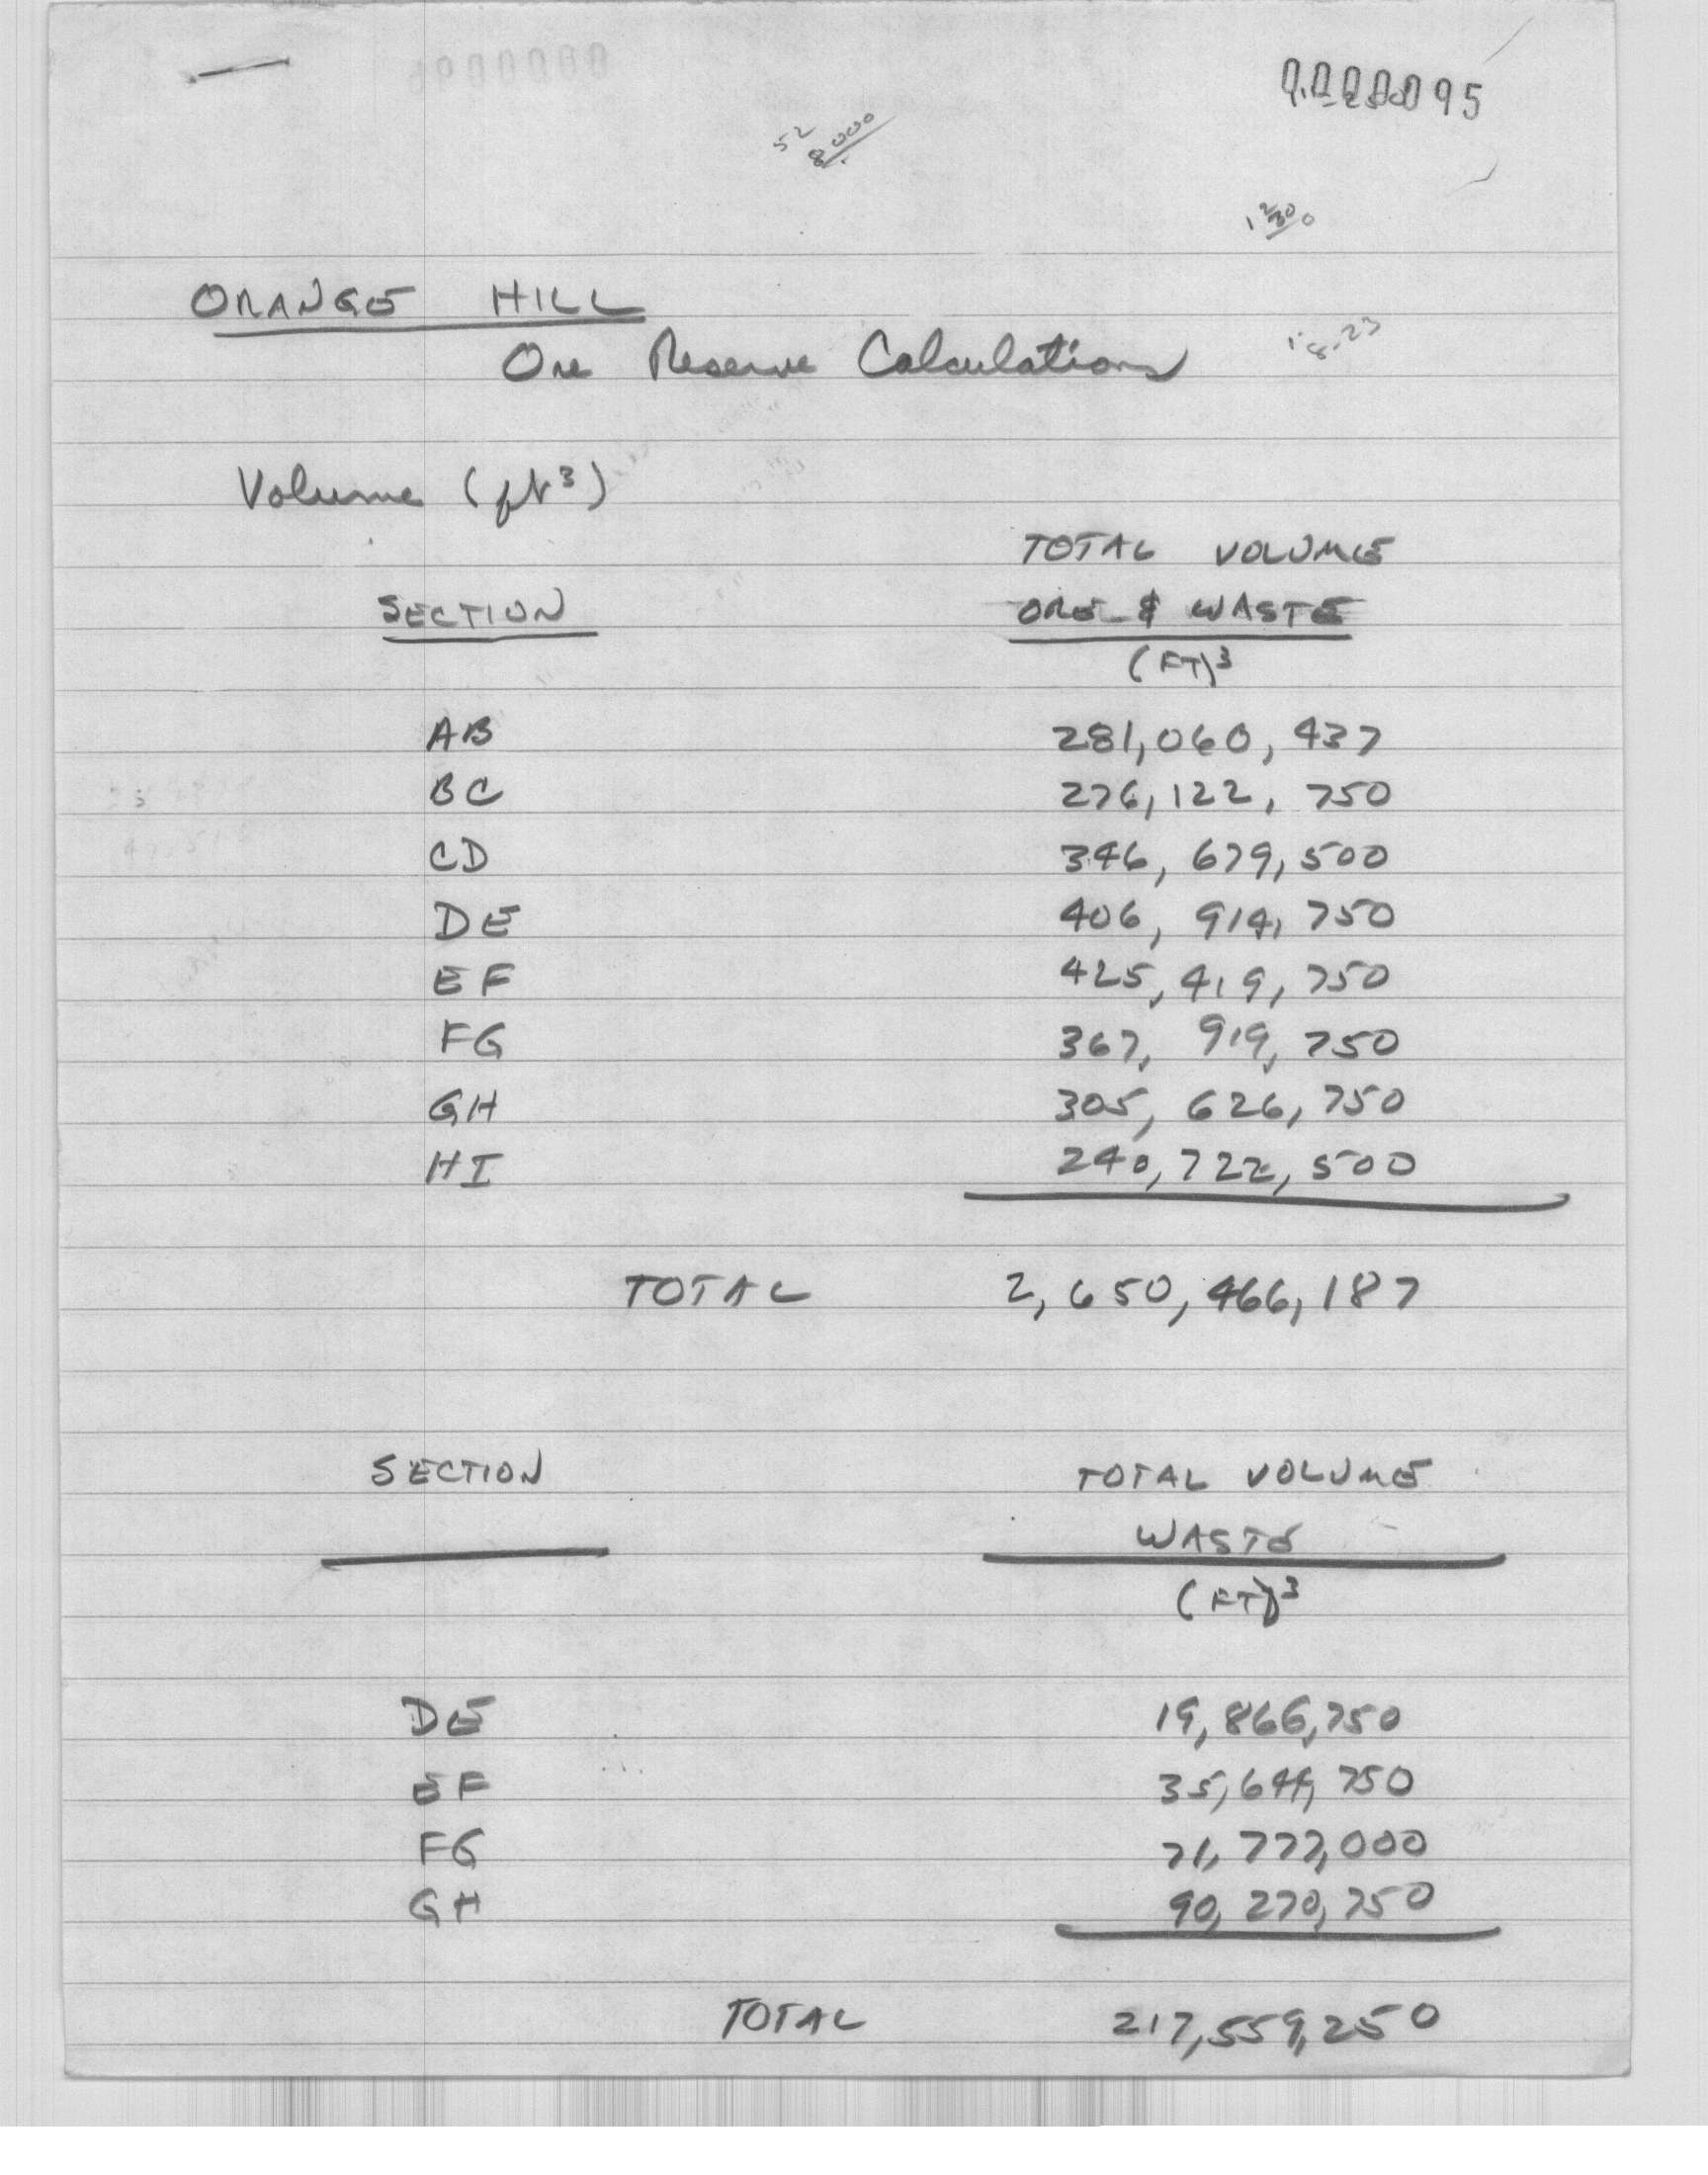 0000095
52
8000
ORANGE HILL
Ore Reserve Calculations
Volume (ft³)
TOTAL VOLUME
SECTION ORE & WASTE
(FT)³
AB 281,060,437
BC 276,122,750
CD 346,679,500
DE 406,914,750
EF 425,419,750
FG 367,919,750
GH 305,626,750
HI 240,722,500
TOTAL 2,650,466,187
SECTION TOTAL VOLUME
WASTE
(FT)³
DE 19,866,750
EF 35,644,750
FG 71,777,000
GH 90,270,750
TOTAL 217,559,250